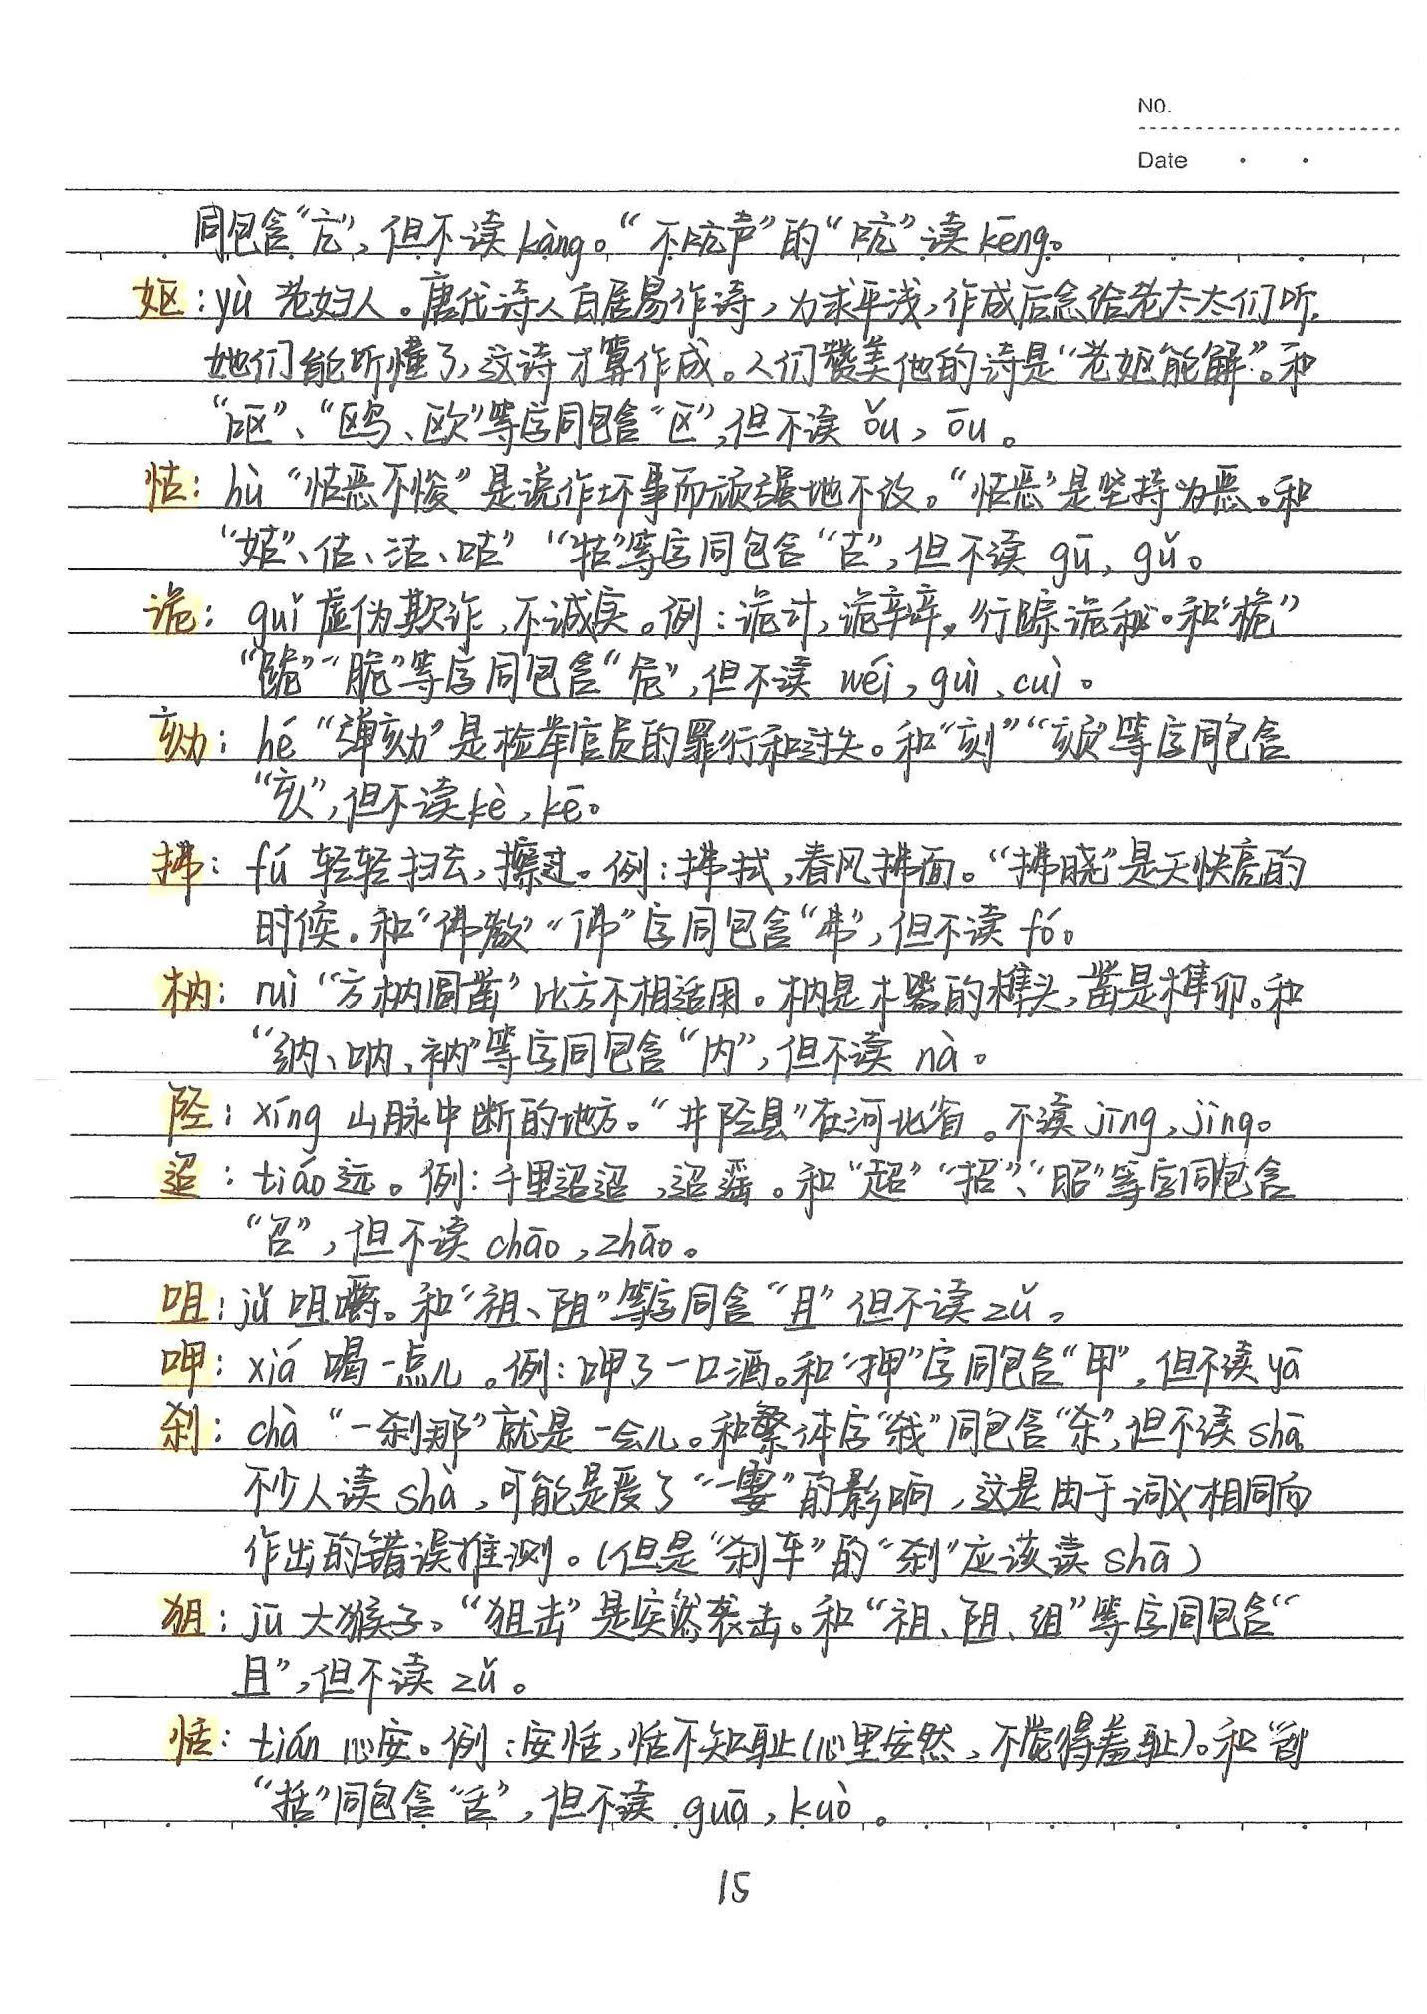 NO.
Date
同包含“亢”，但不读kàng。“不吭声”的“吭”读kēng。
妪：yù 老妇人。唐代诗人白居易作诗，为求平浅，作成后念给老太太们听，
她们能听懂了，这诗才算作成。人们赞美他的诗是“老妪能解”。和
“呕”、“鸥、欧”等字同包含“区”，但不读 ǒu，ōu。
怙：hù “怙恶不悛”是说作坏事而顽强地不改。“怙恶”是坚持为恶。和
“姑”、估、沽、咕”“牯”等字同包含“古”，但不读 gū，gǔ。
诡：guǐ 虚伪欺诈，不诚实。例：诡计，诡辩，行踪诡秘。和“桅”
“跪”“脆”等字同包含“危”，但不读 wéi，guì、cuì。
劾：hé “弹劾”是检举官员的罪行和过失。和“刻”“颏”等字同包含
“亥”，但不读kè，kē。
拂：fú 轻轻扫去，擦过。例：拂拭，春风拂面。“拂晓”是天快亮的
时候。和“佛教”“佛”字同包含“弗”，但不读 fó。
枘：ruì “方枘圆凿”比方不相适用。枘是木器的榫头，凿是榫卯。和
“纳、呐，衲”等字同包含“内”，但不读 nà。
陉：xíng 山脉中断的地方。“井陉县”在河北省。不读jīng，jìng。
迢：tiáo远。例：千里迢迢，迢遥。和“超”“招”、“昭”等字同包含
“召”，但不读 chāo，zhāo。
咀：jǔ 咀嚼。和“祖、阻”等字同含“且”但不读zǔ。
呷：xiá 喝一点儿。例：呷了一口酒。和“押”字同包含“甲”，但不读yā
刹：chà “一刹那”就是一会儿。和繁体字“殺”同包含“杀”，但不读 shā
不少人读shà，可能是受了“一霎”的影响，这是由于词义相同而
作出的错误推测。（但是“刹车”的“刹”应该读shā）
狙：jū 大猴子。“狙击”是突然袭击。和“祖、阻、组”等字同包含“
且”，但不读 zǔ。
恬：tián 心安。例：安恬，恬不知耻（心里安然，不觉得羞耻）。和“刮
“括”同包含“舌”，但不读 guā，kuò。
15